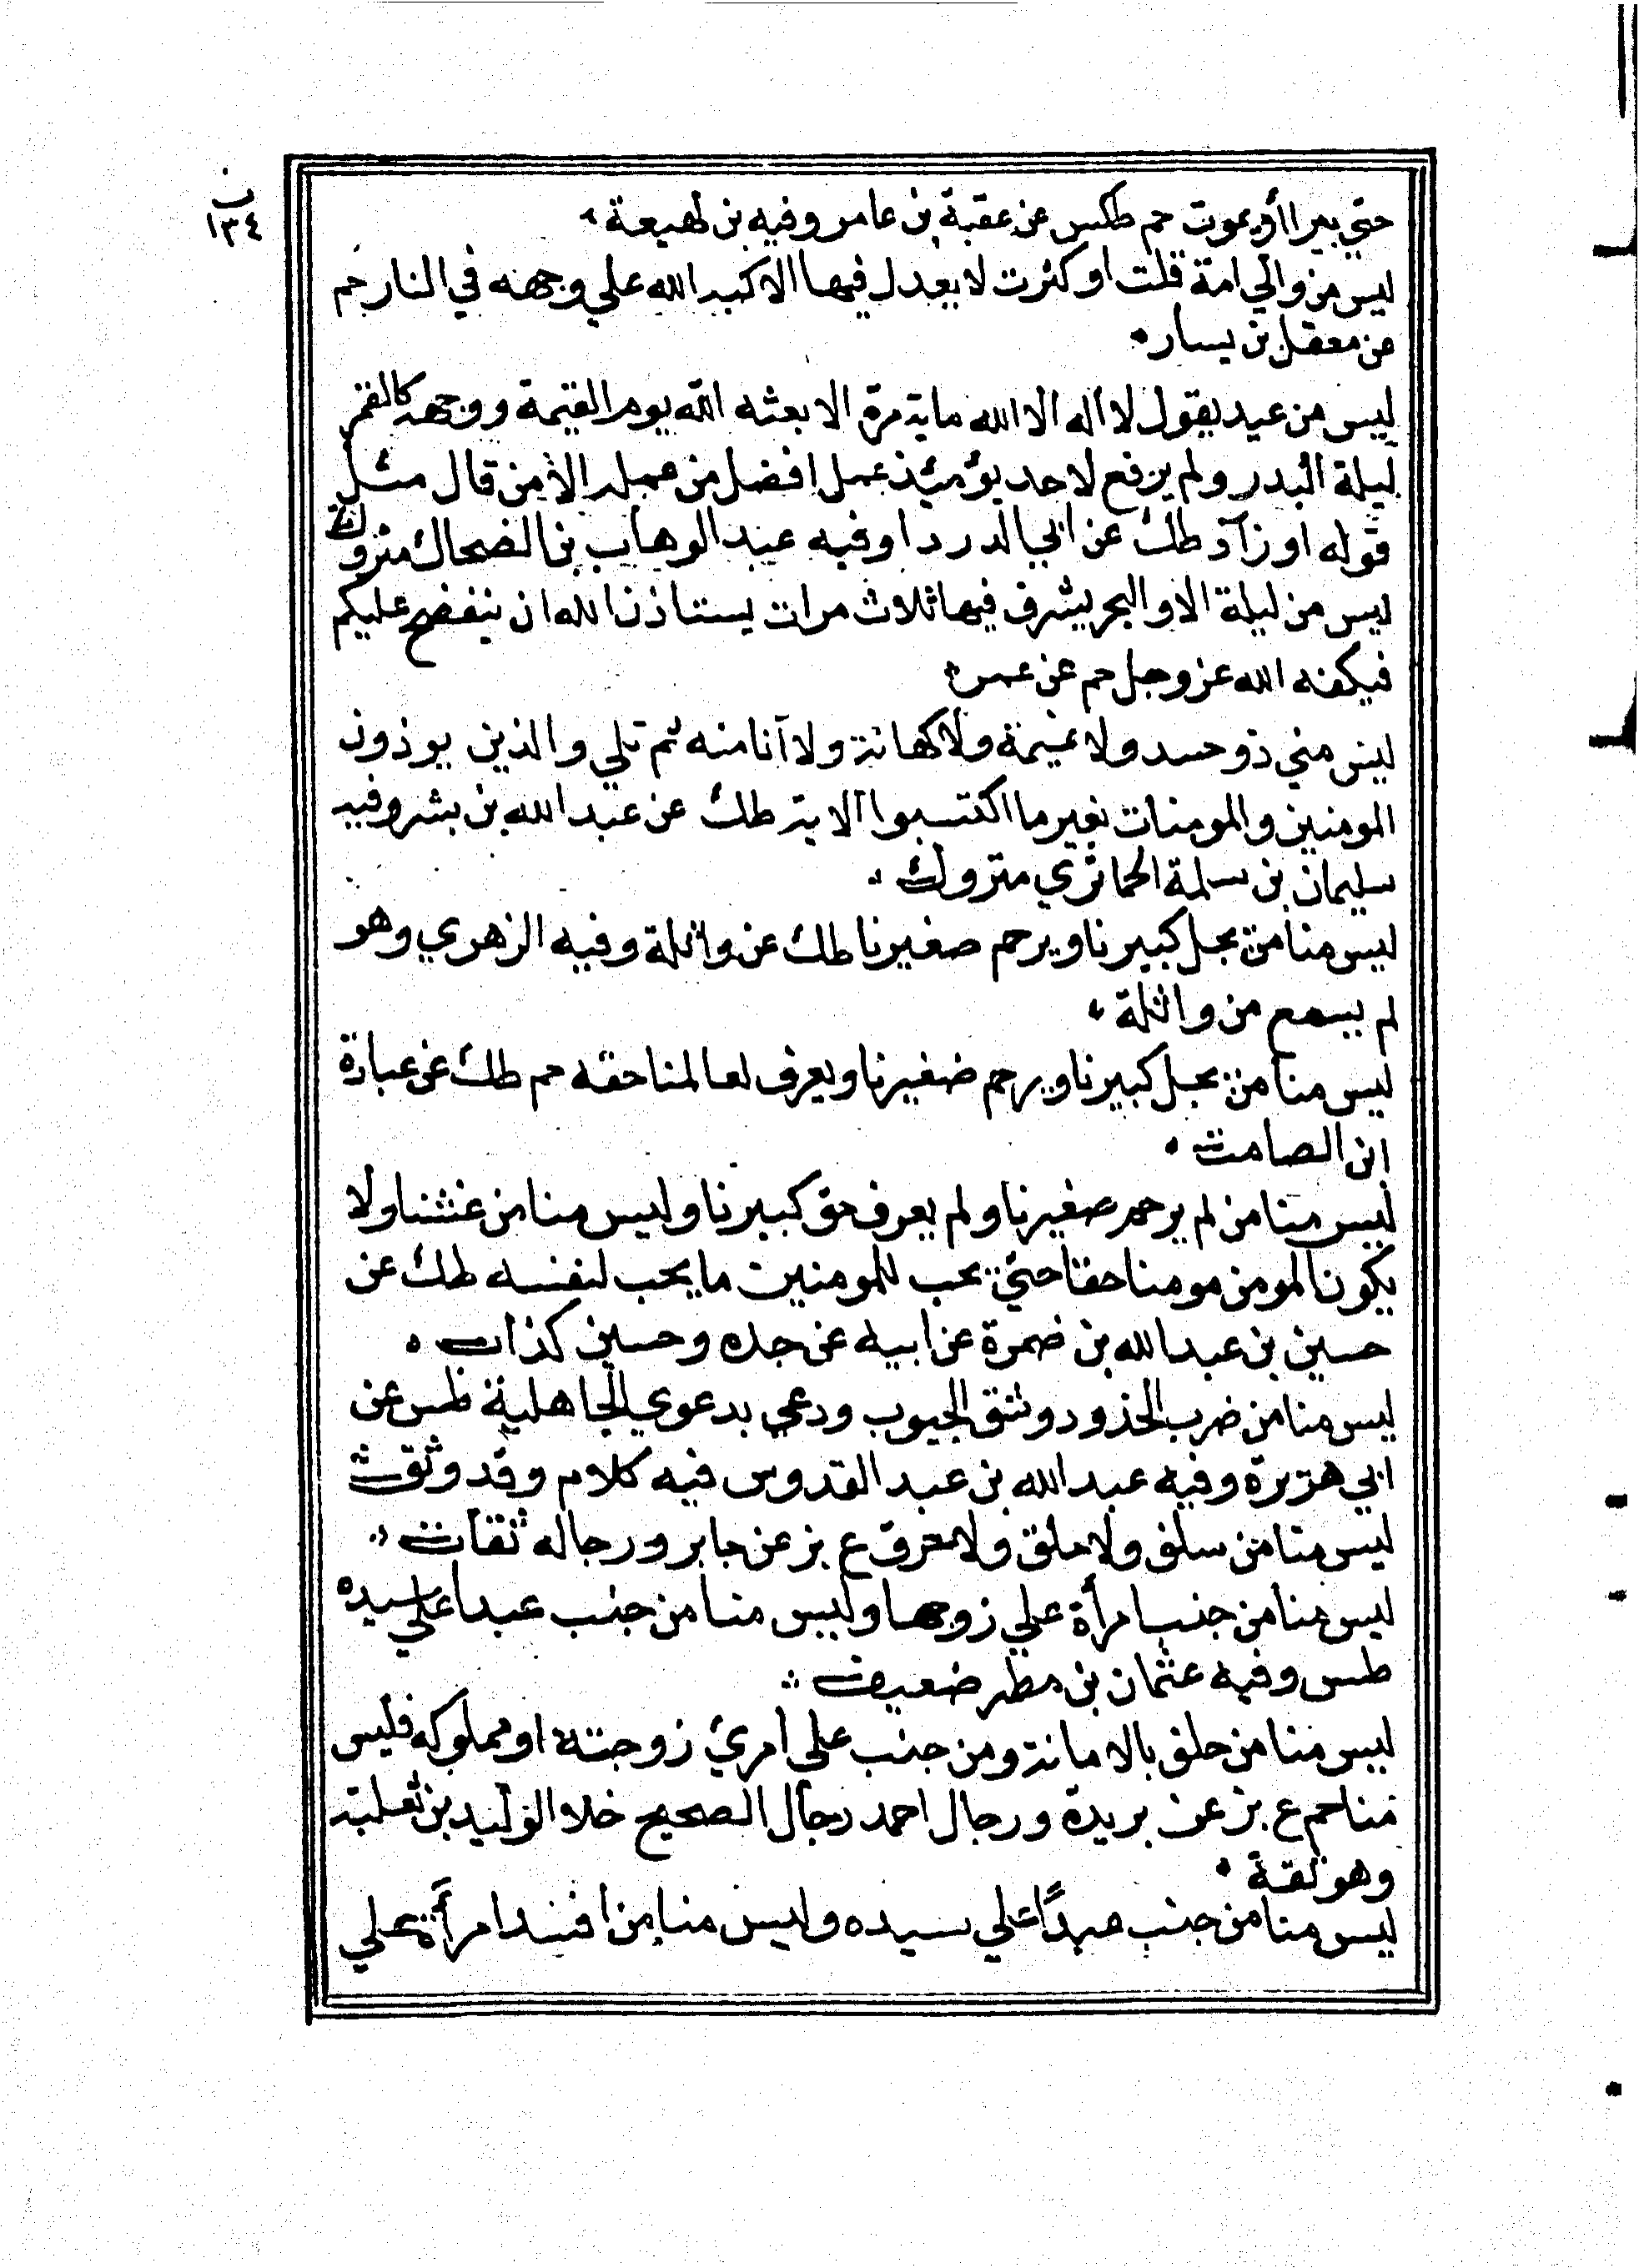 ب
١٣٤
حتي يبرا أو يموت حم طكس عن عقبة بن عامر وفيه بن لهيعة
ليس من والي امة قلت او كثرت لا يعدل فيها الا كبه الله علي وجهه في النار حم
عن معقل بن يسار
ليس من عبد يقول لا اله الا الله ماية مرة الا بعثه الله يوم القيمة ووجهه كالقمر
ليلة البدر ولم يرفع لاحد يومئذ عمل افضل من عمله الا من قال مثل
قوله او زاد طك عن ابي الدردا وفيه عبد الوهاب بن الضحاك متروك
ليس من ليلة الا والبحر يشرف فيها ثلاث مرات يستاذن الله ان ينفضح عليكم
فيكفه الله عز وجل حم عن عمر
ليس مني ذو حسد ولا نميمة ولا كهانة ولا أنا منه ثم تلي والذين يوذون
المومنين والمومنات بغير ما اكتسبوا الاية طك عن عبد الله بن بشر وفيه
سليمان بن سلمة الخبائري متروك
ليس منا من يجل كبيرنا ويرحم صغيرنا طك عن واثلة وفيه الزهري وهو
لم يسمع من واثلة
ليس منا من يجل كبيرنا ويرحم صغيرنا ويعرف لعالمنا حقه حم طك عن عبادة
ابن الصامت
ليس منا من لم يرحم صغيرنا ولم يعرف حق كبيرنا وليس منا من غشنا ولا
يكون المومن مومنا حقا حتي يحب للمومنين ما يحب لنفسه طك عن
حسين بن عبد الله بن ضمرة عن ابيه عن جده وحسين كذاب
ليس منا من ضرب الخدود وشق الجيوب ودعي بدعوي الجاهلية طس عن
ابي هريرة وفيه عبد الله بن عبد القدوس فيه كلام وقد وثق
ليس منا من سلق ولا حلق ولا خرق ع بز عن جابر ورجاله ثقات
ليس منا من خبب امرأة علي زوجها وليس منا من خبب عبدا علي سيده
طس وفيه عثمان بن مطر ضعيف
ليس منا من حلف بالامانة ومن خبب علي امرئ زوجته او مملوكه فليس
منا حم ع بز عن بريدة ورجال احمد رجال الصحيح خلا الوليد بن ثعلبة
وهو ثقة
ليس منا من خبب عبدًا علي سيده وليس منا من افسد امرأة علي